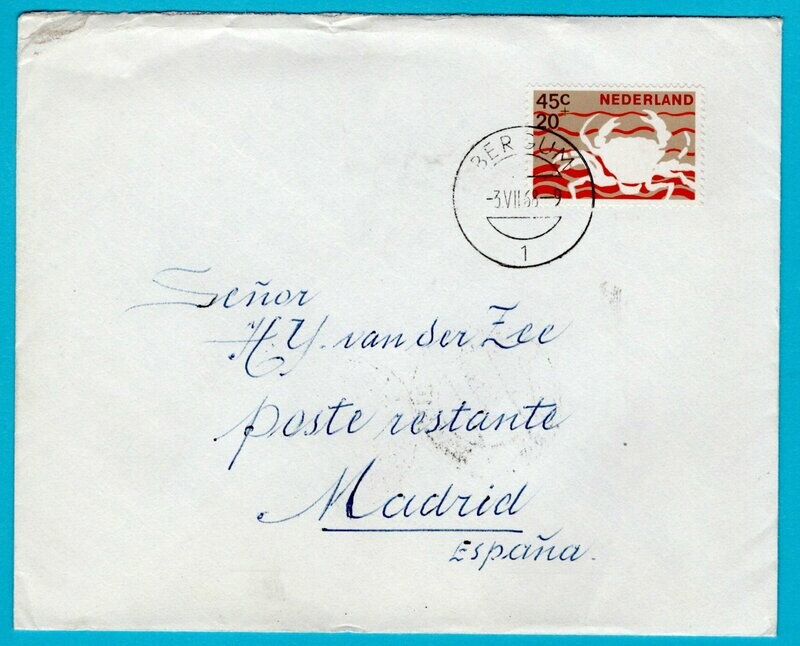 45c NEDERLAND
+
20
BERGUM
-3.VII.68-9
1
Señor
H.Y. van der Zee
poste restante
Madrid
España.